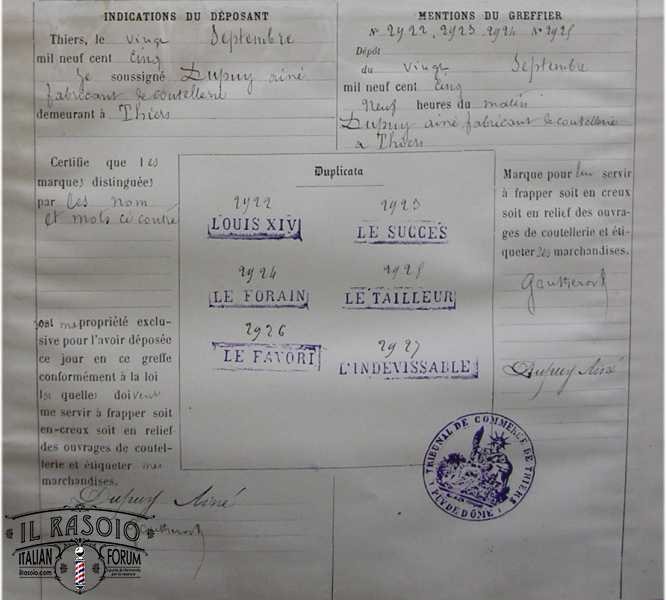 INDICATIONS DU DÉPOSANT
Thiers, le vingt Septembre
mil neuf cent Cinq
Je soussigné Dupuy ainé
fabricant de coutellerie
demeurant à Thiers
MENTIONS DU GREFFIER
Nº 2922, 2923 2924 Nº 2925
Dépôt
du vingt Septembre
mil neuf cent Cinq
Neuf heures du matin
Dupuy ainé fabricant de coutellerie
à Thiers
Certifie que les
marques distinguées
par les nom
et mots ci contre
est ma propriété exclu-
sive pour l'avoir déposée
ce jour en ce greffe
conformément à la loi
les quelles doivent
me servir à frapper soit
en-creux soit en relief
des ouvrages de coutel-
lerie et étiqueter mes
marchandises.
Dupuy Ainé
Duplicata
2922 2923
LOUIS XIV LE SUCCÈS
2924 2925
LE FORAIN LE TAILLEUR
2926 2927
LE FAVORI L'INDEVISSABLE
Marque pour lui servir
à frapper soit en creux
soit en relief des ouvra-
ges de coutellerie et éti-
queter ses marchandises.
Dupuy Ainé
TRIBUNAL DE COMMERCE DE THIERS
(PUY DE DÔME)
IL RASOIO
ITALIAN FORUM
ilrasoio.com